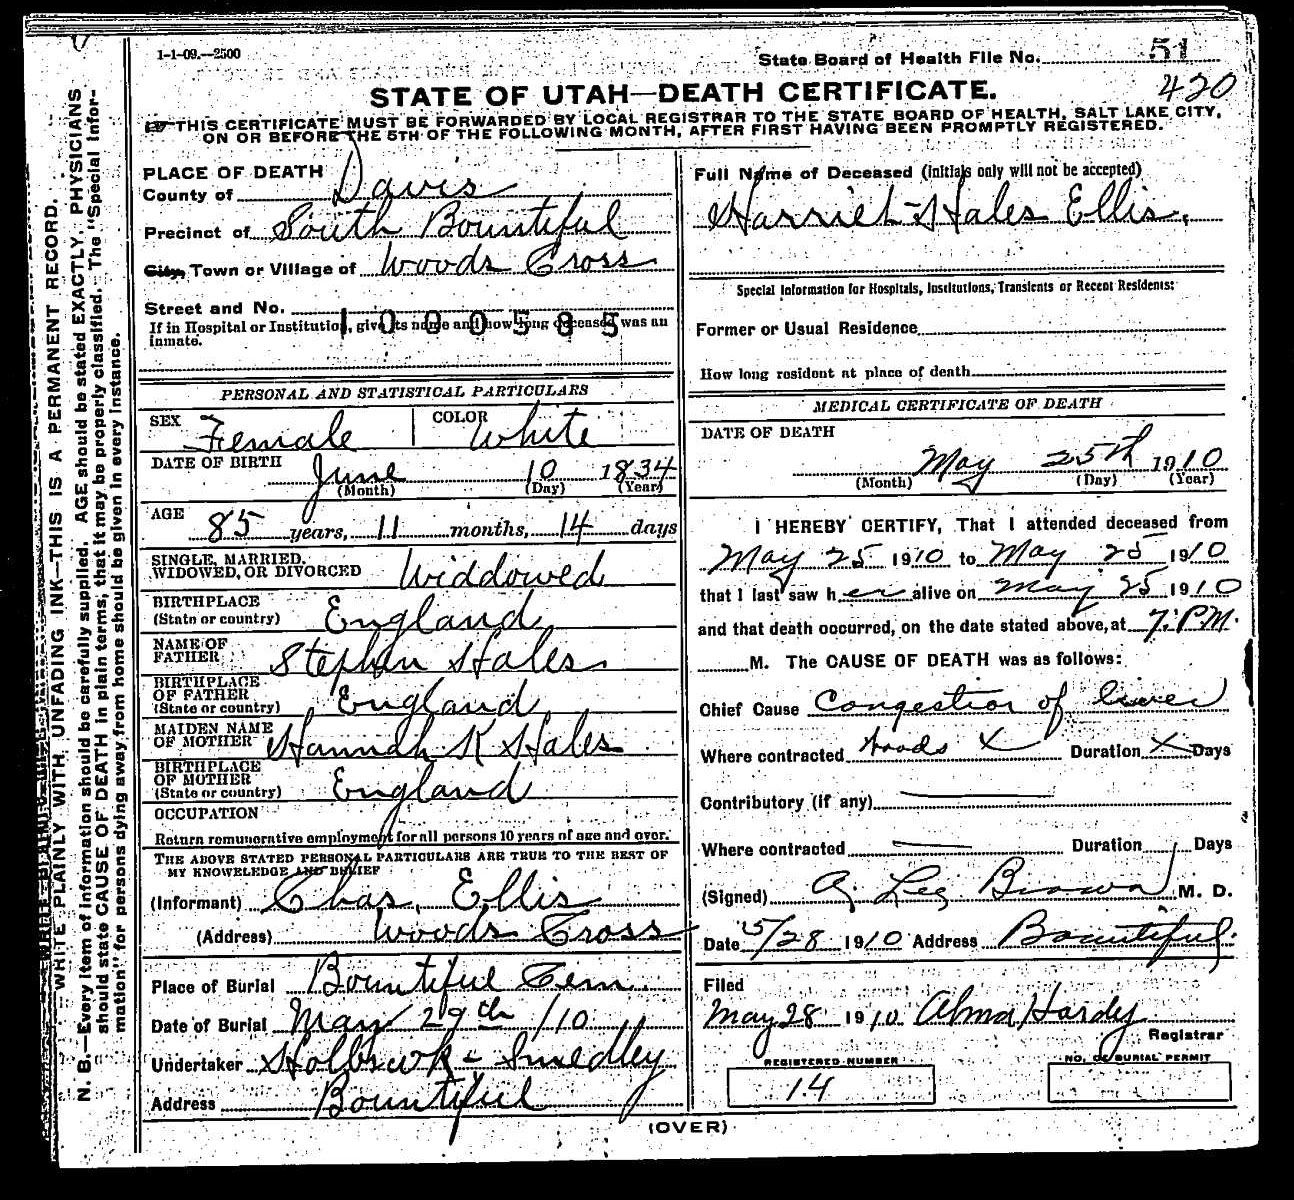 1-1-09.—2500
State Board of Health File No. 51
420
STATE OF UTAH—DEATH CERTIFICATE.
THIS CERTIFICATE MUST BE FORWARDED BY LOCAL REGISTRAR TO THE STATE BOARD OF HEALTH, SALT LAKE CITY,
ON OR BEFORE THE 5TH OF THE FOLLOWING MONTH, AFTER FIRST HAVING BEEN PROMPTLY REGISTERED.
N. B.—Every item of information should be carefully supplied. AGE should be stated EXACTLY, PHYSICIANS
should state CAUSE OF DEATH in plain terms, that it may be properly classified. The "Special Infor-
mation" for persons dying away from home should be given in every instance.
WRITE PLAINLY WITH UNFADING INK—THIS IS A PERMANENT RECORD.
PLACE OF DEATH
County of Davis
Precinct of South Bountiful
City, Town or Village of Woods Cross
Street and No.
1000585
If in Hospital or Institution, give its name and how long deceased was an
inmate.
PERSONAL AND STATISTICAL PARTICULARS
SEX Female COLOR White
DATE OF BIRTH June 10 1834
(Month) (Day) (Year)
AGE 85 years, 11 months, 14 days
SINGLE, MARRIED,
WIDOWED, OR DIVORCED Widdowed
BIRTHPLACE
(State or country) England
NAME OF
FATHER Stephen Hales
BIRTHPLACE
OF FATHER
(State or country) England
MAIDEN NAME
OF MOTHER Hannah K Hales
BIRTHPLACE
OF MOTHER
(State or country) England
OCCUPATION
Return remunerative employment for all persons 10 years of age and over.
THE ABOVE STATED PERSONAL PARTICULARS ARE TRUE TO THE BEST OF
MY KNOWLEDGE AND BELIEF
(Informant) Chas. Ellis
(Address) Woods Cross
Place of Burial Bountiful Cem.
Date of Burial May 29th /10
Undertaker Holbrook - Smedley
Address Bountiful
Full Name of Deceased (initials only will not be accepted)
Harriet Hales Ellis.
Special Information for Hospitals, Institutions, Transients or Recent Residents:
Former or Usual Residence
How long resident at place of death
MEDICAL CERTIFICATE OF DEATH
DATE OF DEATH
May 25th 1910
(Month) (Day) (Year)
I HEREBY CERTIFY, That I attended deceased from
May 25 1910 to May 25 1910
that I last saw her alive on May 25 1910
and that death occurred, on the date stated above, at 7. P.M.
M. The CAUSE OF DEATH was as follows:
Chief Cause Congestion of liver
Where contracted Woods X Duration X Days
Contributory (if any) —
Where contracted — Duration Days
(Signed) Brown M. D.
Date 5/28 1910 Address Bountiful.
Filed
May 28 1910 Alma Hardy
Registrar
REGISTERED NUMBER
14
NO. OF BURIAL PERMIT
(OVER)